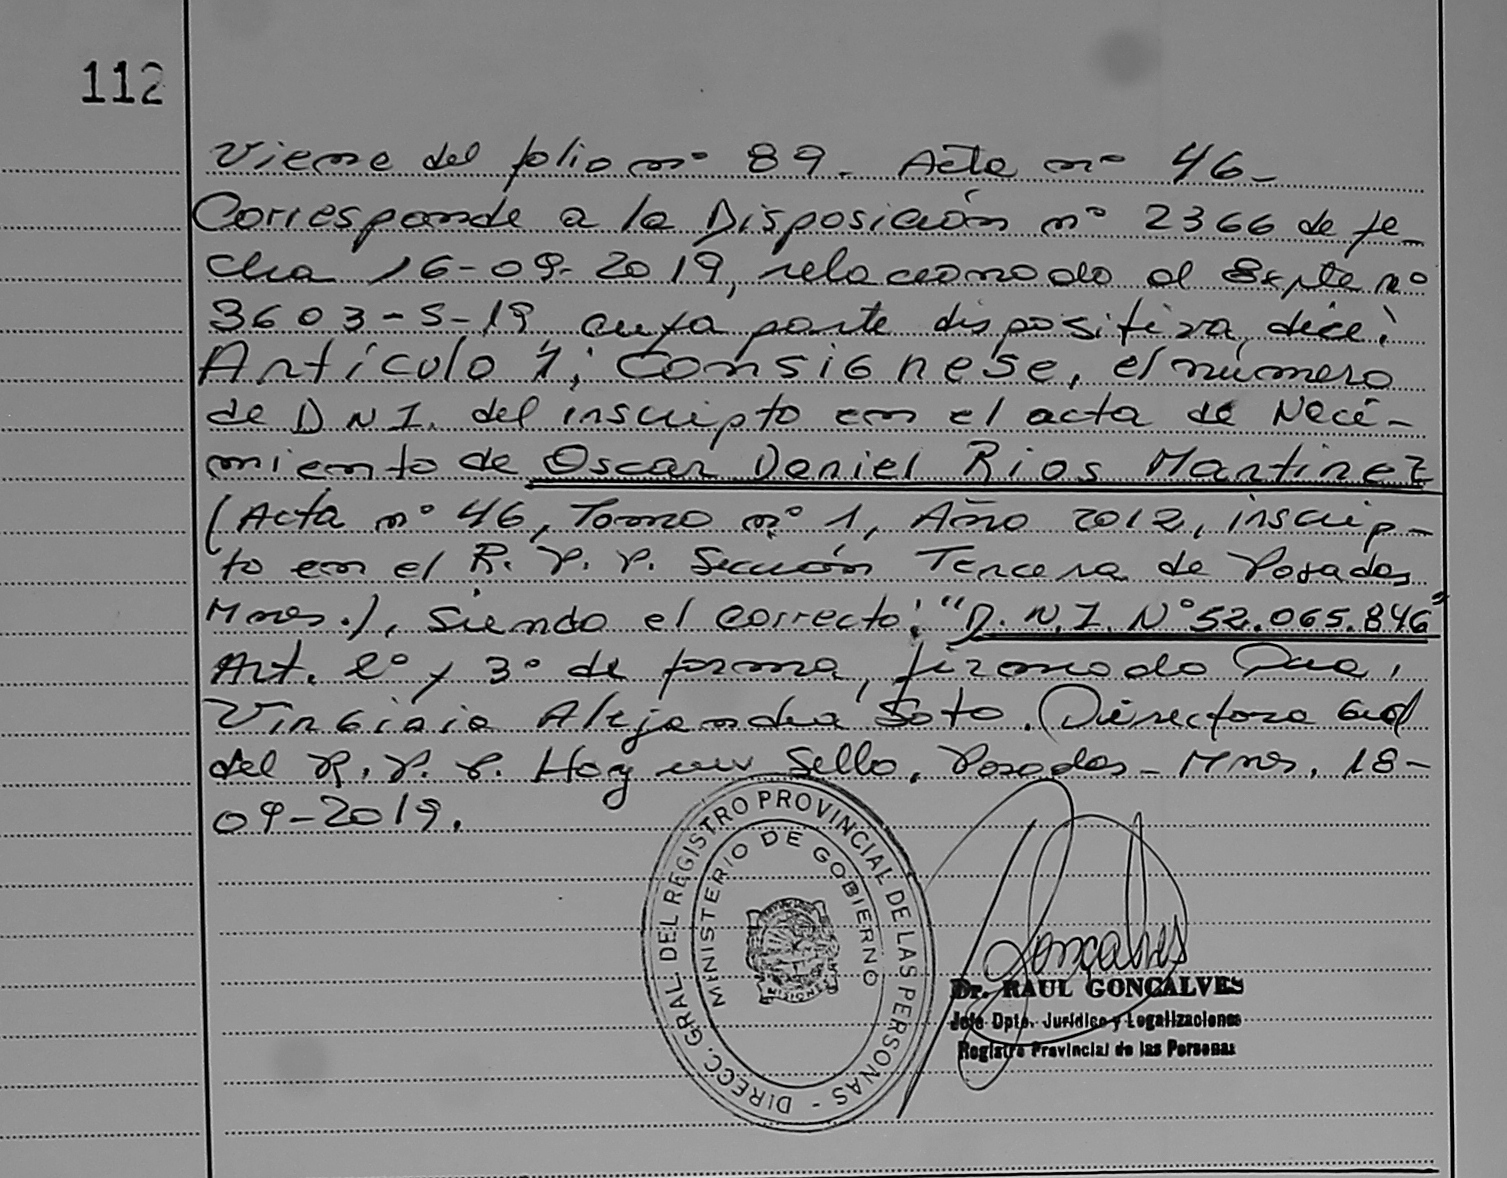 112
Viene del folio nº 89. Acta nº 46-
Corresponde a la Disposición nº 2366 de fe
cha 16-09-2019, relacionado al Expte nº
3603-S-19, cuya parte dispositiva, dice:
Artículo 1; Consignese, el número
de DNI. del inscripto en el acta de Naci-
miento de Oscar Daniel Rios Martinez
(Acta nº 46, Tomo nº 1, Año 2012, inscrip-
to en el R. P. P. Sección Tercera de Posadas
Mnes.), siendo el correcto: "D.N.I. Nº 52.065.846"
Art. 2º y 3º de forma, firmado Dra,
Virginia Alejandra Soto. Directora Gral
del R. P. P. Hay un Sello. Posadas-Mnes, 18-
09-2019.
DIRECC. GRAL. DEL REGISTRO PROVINCIAL DE LAS PERSONAS -
MINISTERIO DE GOBIERNO
MISIONES
Goncalves
Dr. RAUL GONCALVES
Jefe Dpto. Jurídico y Legalizaciones
Registro Provincial de las Personas